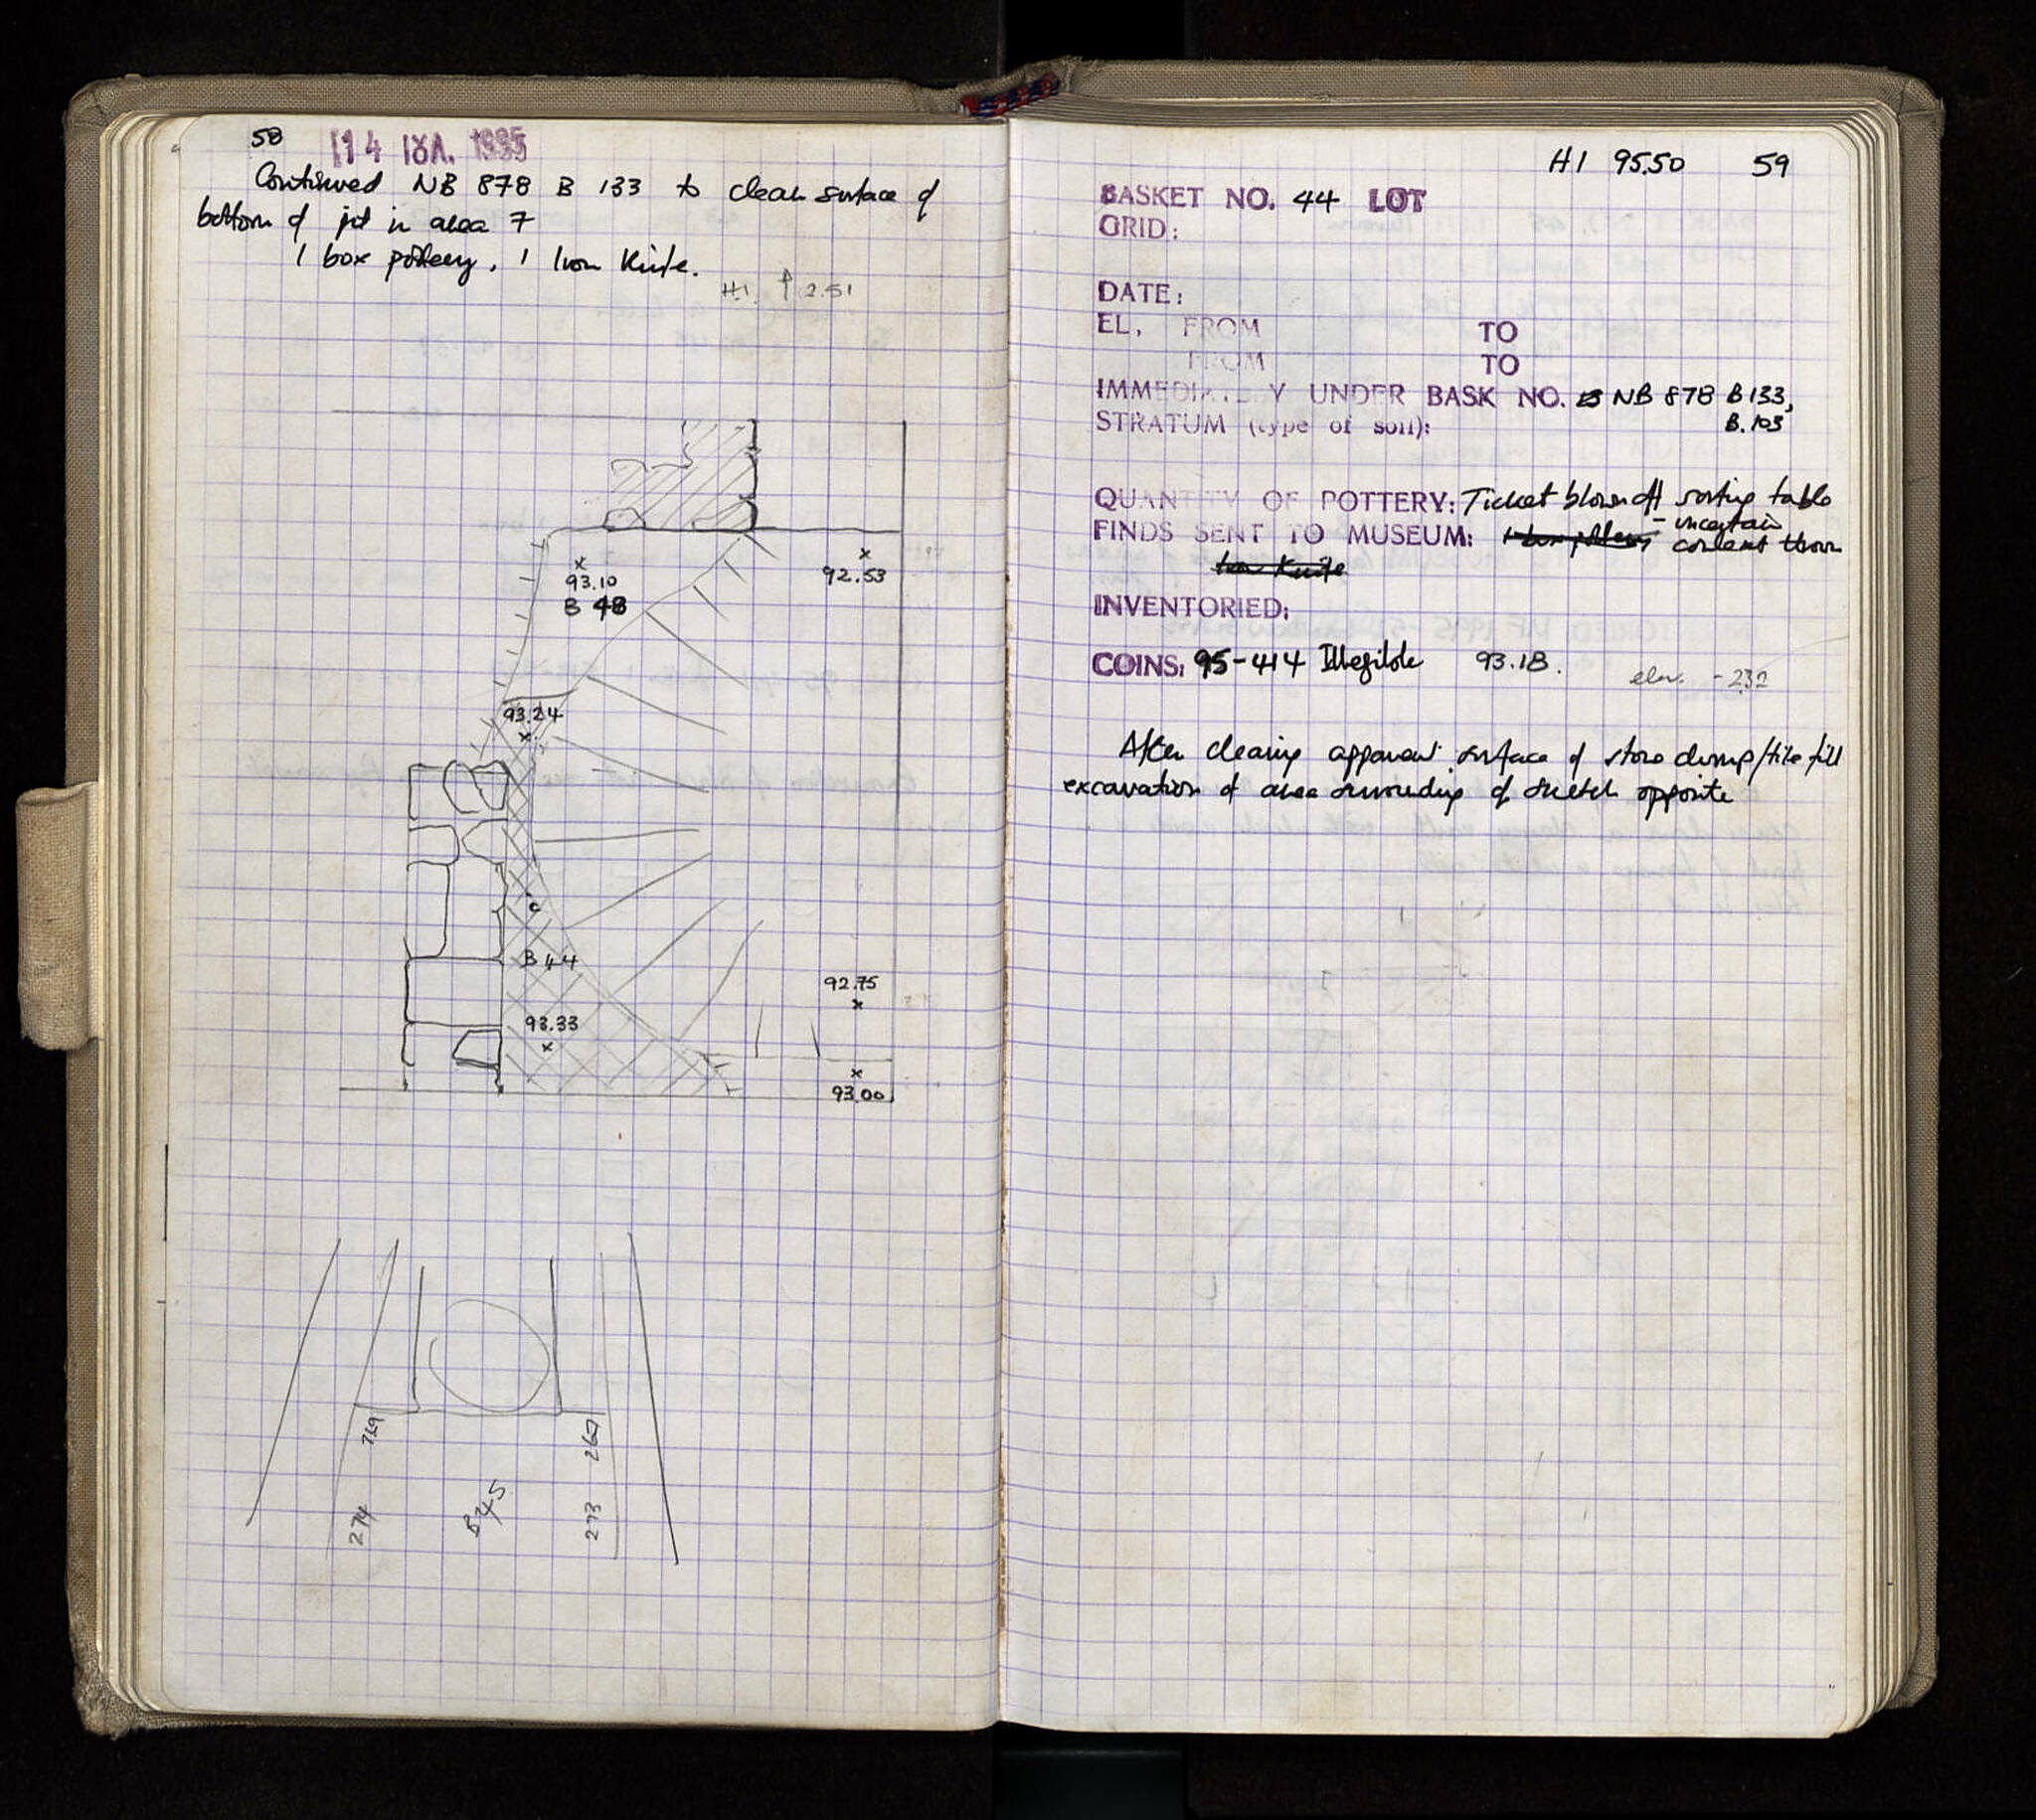 58 14 ΙΟΥΛ. 1995
Continued NB 878 B 133 to clean surface of
bottom of pit in area 7
1 box pottery, 1 Iron Knife.
HI ↑ 2.51
93.10
B 48
92.53
93.24
B 44
92.75
93.33
93.00
269
267
274
B45
273
HI 95.50 59
BASKET NO. 44 LOT
GRID:
DATE:
EL, FROM TO
FROM TO
IMMEDIATELY UNDER BASK NO. NB 878 B 133,
B.103
STRATUM (type of soil):
QUANTITY OF POTTERY: Ticket blown off sorting table
- uncertain
FINDS SENT TO MUSEUM: 1 box pottery context thrown
Iron Knife
INVENTORIED:
COINS: 95-414 Illegible 93.18.
elev. - 232
After clearing apparent surface of stone dump/tile fill
excavation of area surrounding of sketch opposite